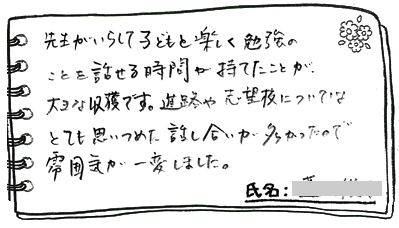 先生がいらして子どもと楽しく勉強の
ことを話せる時間が持てたことが、
大きな収穫です。進路や志望校については
とても思いつめた話し合いが多かったので
雰囲気が一変しました。
氏名: